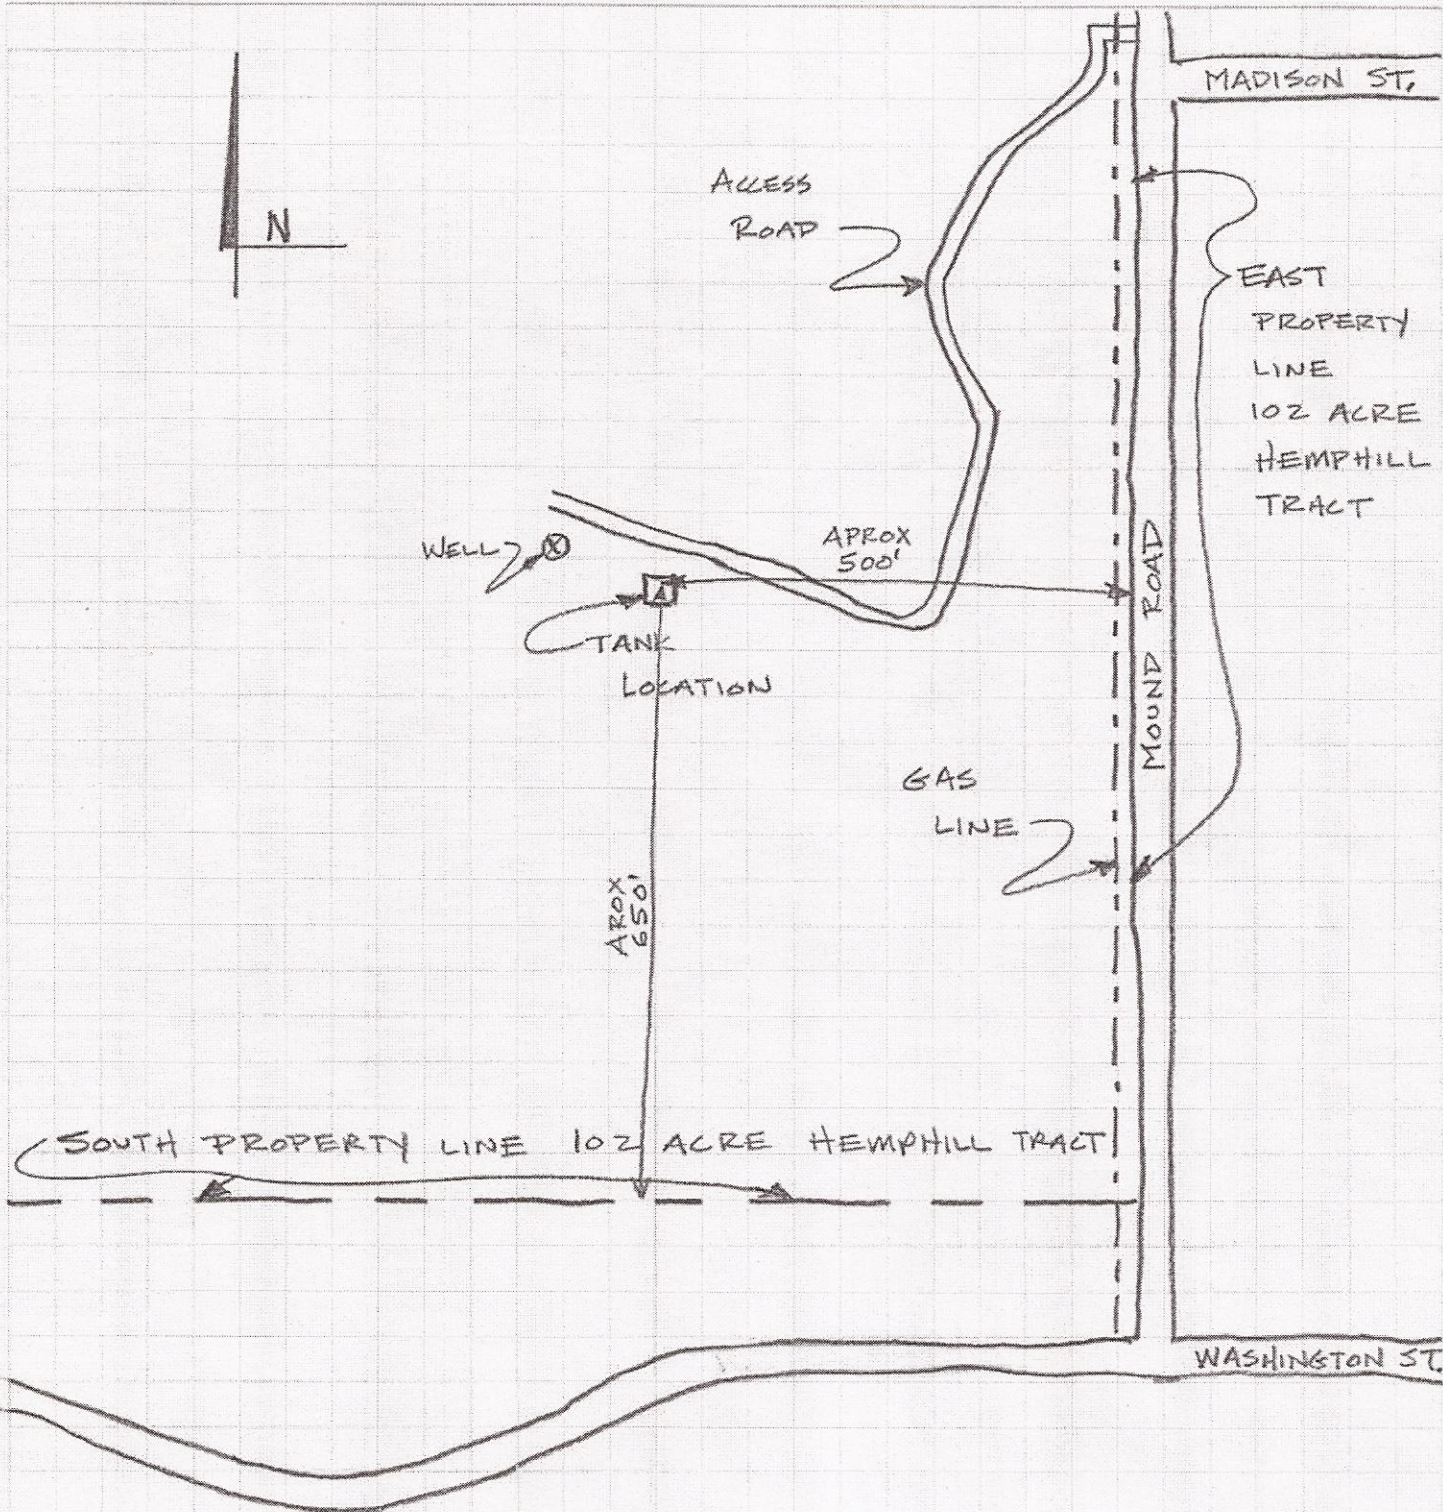 MADISON ST.
N
ACCESS
ROAD
EAST
PROPERTY
LINE
102 ACRE
HEMPHILL
TRACT
WELL
X
APROX
500'
A
TANK
LOCATION
MOUND ROAD
GAS
LINE
AROX
650'
SOUTH PROPERTY LINE 102 ACRE HEMPHILL TRACT
WASHINGTON ST.